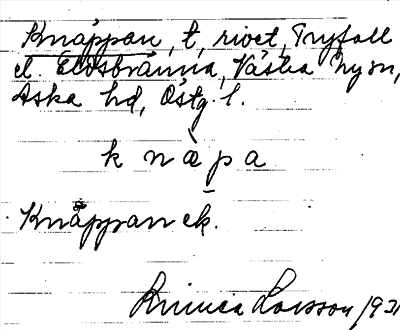 Knäppan, t, rivet, Tryfall
el. Eldsbränna, Västra Ny sn,
Aska hd, Östg. l.
k n æ̀ p a
Knäppan ek.
Larsson 1931